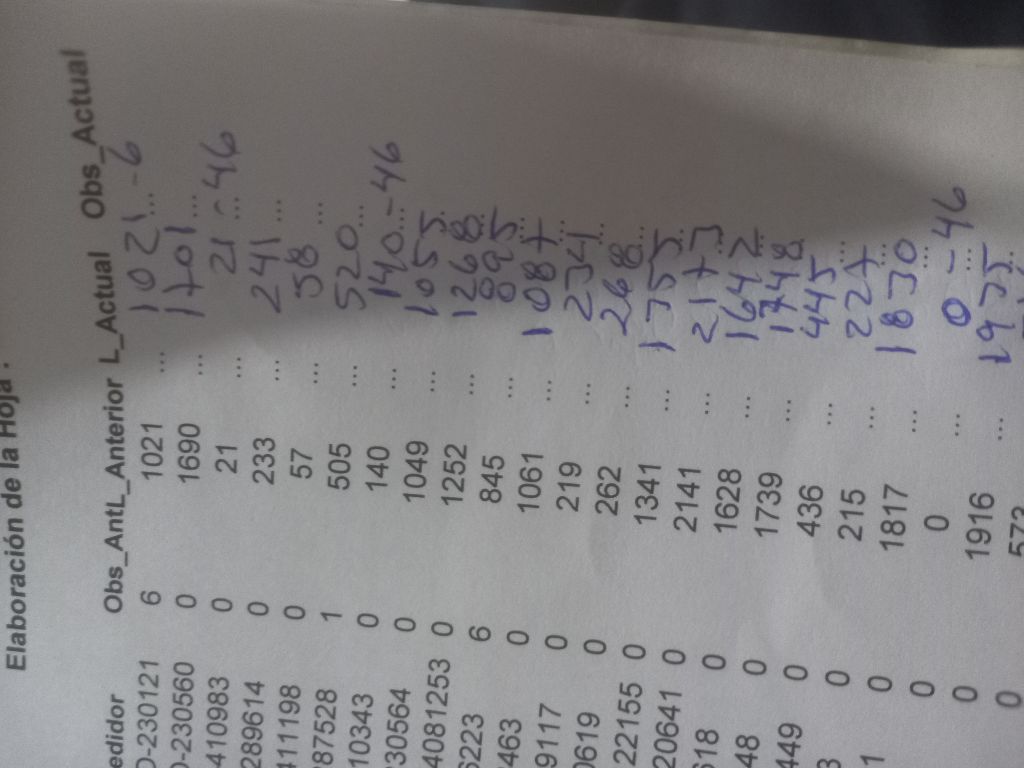 Elaboración de la Hoja :
edidor Obs_AntL_Anterior L_Actual Obs_Actual
0-230121 6 1021 ... 1021 ... -6
0-230560 0 1690 ... 1701 ...
410983 0 21 ... 21 ... -46
289614 0 233 ... 241 ...
411198 0 57 ... 58 ...
87528 1 505 ... 520 ...
10343 0 140 ... 140 ... -46
30564 0 1049 ... 1055 ...
4081253 0 1252 ... 1268 ...
6223 6 845 ... 895 ...
463 0 1061 ... 1087 ...
9117 0 219 ... 234 ...
0619 0 262 ... 268 ...
22155 0 1341 ... 1355 ...
20641 0 2141 ... 2173 ...
618 0 1628 ... 1642 ...
48 0 1739 ... 1748 ...
449 0 436 ... 445 ...
3 0 215 ... 227 ...
1 0 1817 ... 1830 ...
0 0 ... 0 ... -46
0 1916 ... 1935 ...
0 573